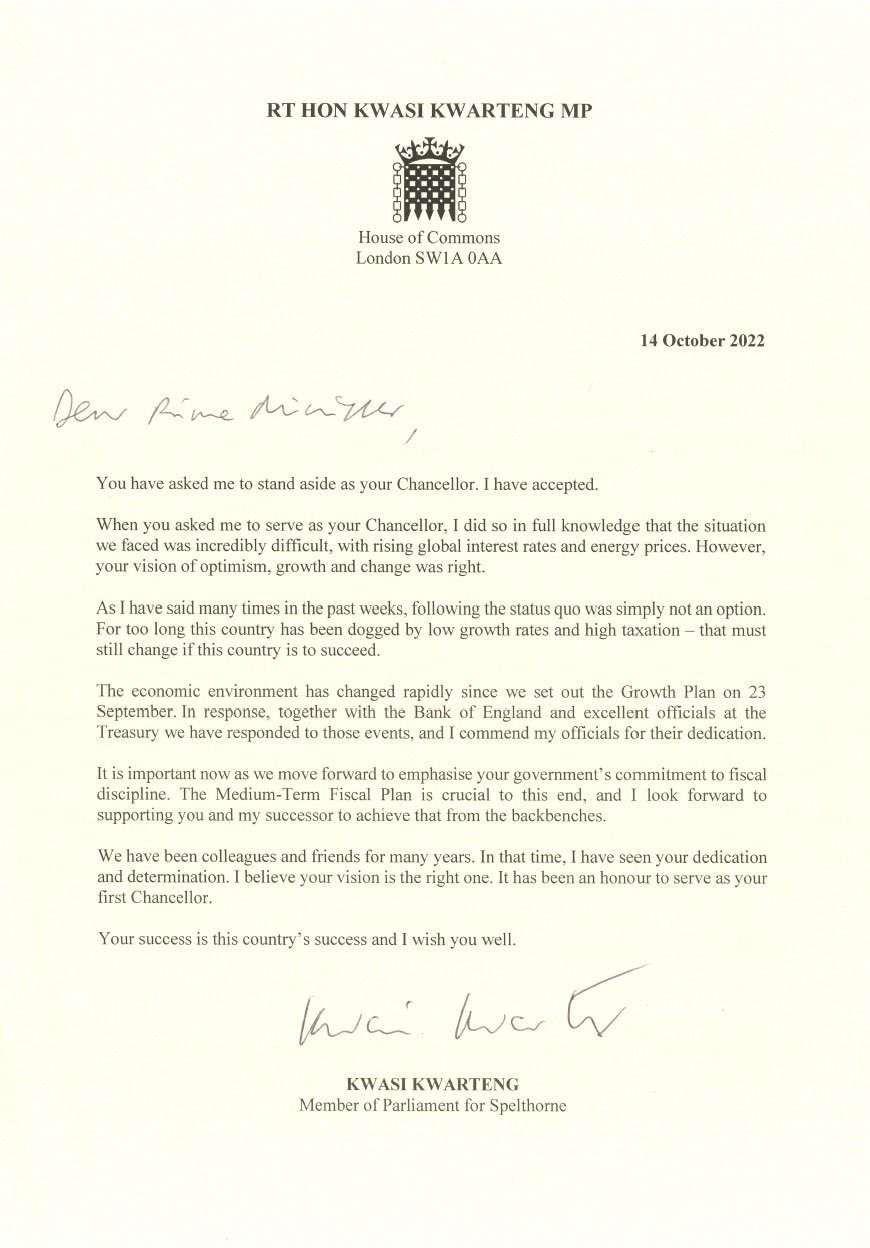 RT HON KWASI KWARTENG MP
House of Commons
London SW1A 0AA
14 October 2022
Dear Prime Minister,
You have asked me to stand aside as your Chancellor. I have accepted.
When you asked me to serve as your Chancellor, I did so in full knowledge that the situation
we faced was incredibly difficult, with rising global interest rates and energy prices. However,
your vision of optimism, growth and change was right.
As I have said many times in the past weeks, following the status quo was simply not an option.
For too long this country has been dogged by low growth rates and high taxation – that must
still change if this country is to succeed.
The economic environment has changed rapidly since we set out the Growth Plan on 23
September. In response, together with the Bank of England and excellent officials at the
Treasury we have responded to those events, and I commend my officials for their dedication.
It is important now as we move forward to emphasise your government's commitment to fiscal
discipline. The Medium-Term Fiscal Plan is crucial to this end, and I look forward to
supporting you and my successor to achieve that from the backbenches.
We have been colleagues and friends for many years. In that time, I have seen your dedication
and determination. I believe your vision is the right one. It has been an honour to serve as your
first Chancellor.
Your success is this country's success and I wish you well.
Kwasi Kwarteng
KWASI KWARTENG
Member of Parliament for Spelthorne